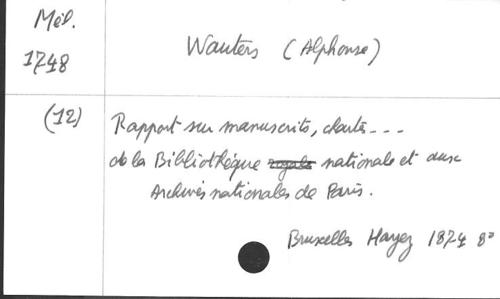 Mél.
1748
Wauters (Alphonse)
(12)
Rapport sur manuscrits, chartes - - -
de la Bibliothèque royale nationale et aux
Archives nationales de Paris.
Bruxelles Hayez 1874 8°